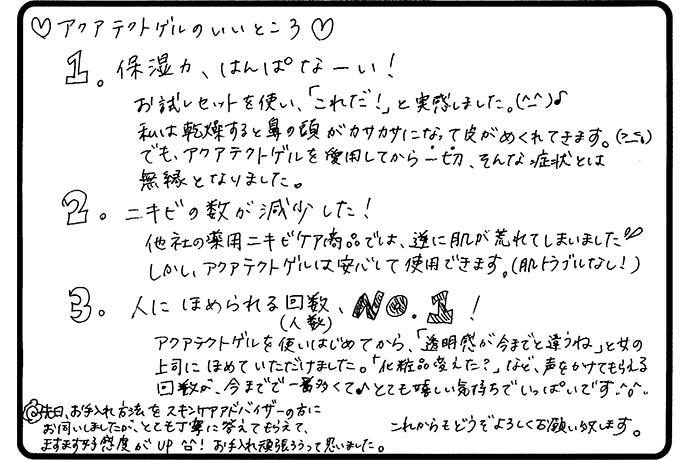 ♡アクアテクトゲルのいいところ♡
1。保湿力、はんぱなーい！
お試しセットを使い、「これだ！」と実感しました。(^-^)♪
私は乾燥すると鼻の頭がカサカサになって皮がめくれてきます。(>_<。)
でも、アクアテクトゲルを愛用してから一切、そんな症状とは
無縁となりました。
2。ニキビの数が減少した！
他社の薬用ニキビケア商品では、逆に肌が荒れてしまいました
しかし、アクアテクトゲルは安心して使用できます。(肌トラブルなし！)
3。人にほめられる回数、NO.1！
(人数)
アクアテクトゲルを使いはじめてから、「透明感が今までと違うね」と女の
上司にほめていただけました。「化粧品変えた？」など、声をかけてもらえる
回数が、今までで一番多くて♪とても嬉しい気持ちでいっぱいです^o^
◎先日、お手入れ方法をスキンケアアドバイザーの方に
お伺いしましたが、とても丁寧に答えてもらえて、
ますます好感度がUP！お手入れ頑張ろうって思いました。
これからもどうぞよろしくお願い致します。